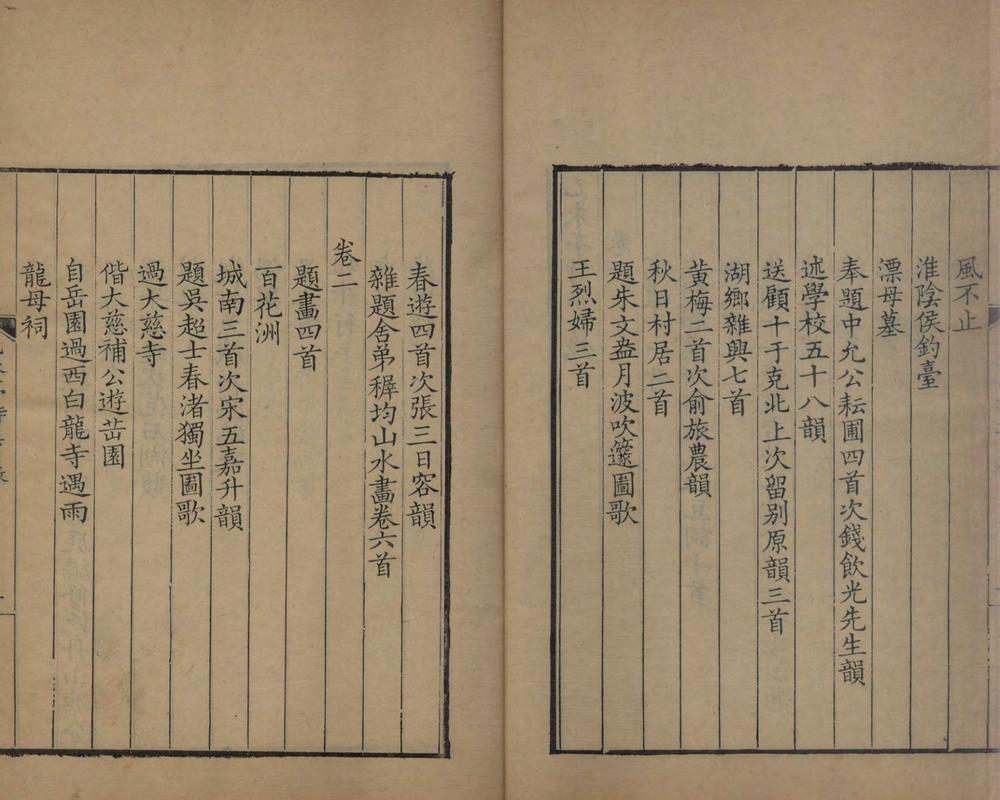 風不止
淮陰侯釣臺
漂母墓
奉題中允公耘圃四首次錢飲光先生韻
述學校五十八韻
送顧十于克北上次留别原韻三首
湖鄉雜興七首
黃梅二首次俞旅農韻
秋日村居二首
題朱文盎月波吹篴圖歌
王烈婦三首
春遊四首次張三日容韻
雜題舍弟穉均山水畫卷六首
卷二
題畫四首
百花洲
城南三首次宋五嘉升韻
題吳超士春渚獨坐圖歌
過大慈寺
偕大慈補公遊茁園
自岳園過西白龍寺遇雨
龍母祠